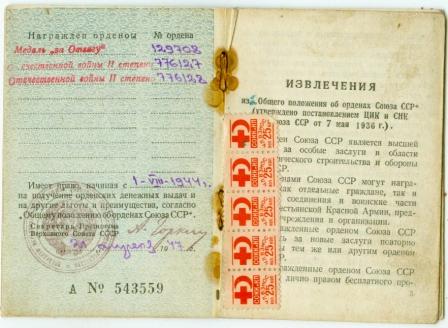 Награжден орденом № ордена
Медаль „за Отвагу" 129708
О счественной войны II степени 776127
Отечественной войны II степени 776128
Имеет право, начиная с 1-VIII-1944 г.
на получение орденских денежных выдач и
на другие льготы и преимущества, согласно
„Общему положению об орденах Союза ССР".
Секретарь Президиума
Верховного Совета СССР
апреля 1947 г.
А № 543559
ИЗВЛЕЧЕНИЯ
из „Общего положения об орденах Союза ССР"
(утверждено постановлением ЦИК и СНК
Союза ССР от 7 мая 1936 г.).
ССР является высшей
за особые заслуги в области
ческого строительства и обороны
СР.
нами Союза ССР могут награ-
как отдельные граждане, так и
соединения и воинские части
естьянской Красной Армии, пред-
учреждения и организации.
ожденные орденом Союза ССР
ь за новые заслуги повторно
ы тем же или другим орденом
СР.
ражденные орденом Союза ССР
лично правом бесплатного про-
25 коп
25 коп
25 коп
25 коп
25 коп
3